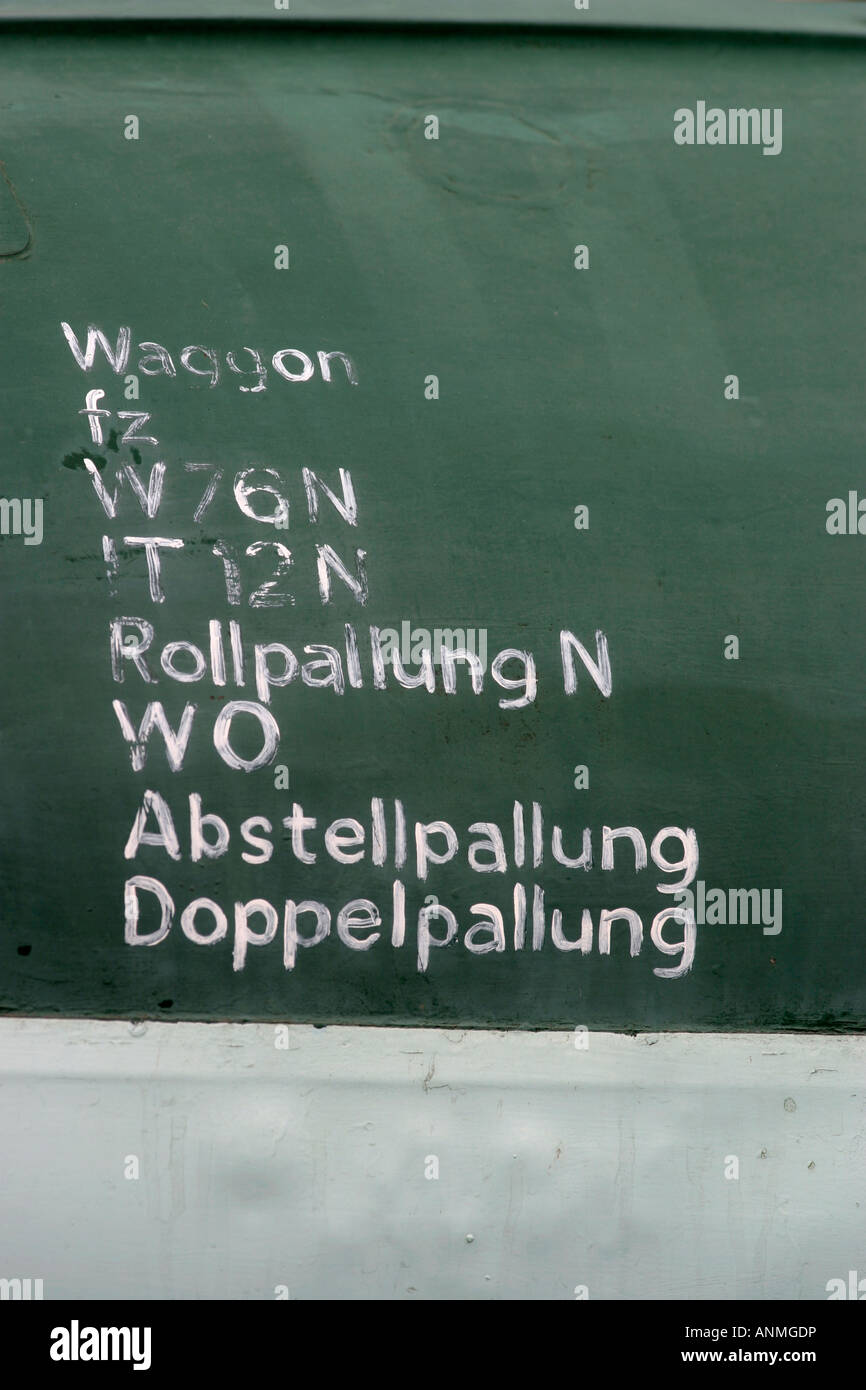 Waggon
fz
W76N
IT12N
Rollpallung N
WO
Abstellpallung
Doppelpallung
alamy
Image ID: ANMGDP
www.alamy.com